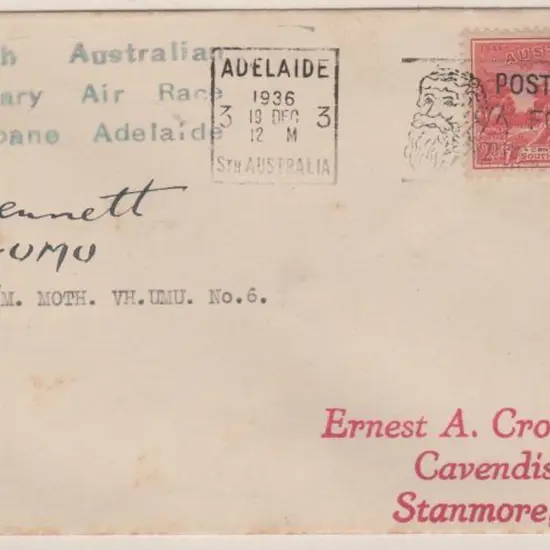 h Australian
ary Air Race
bane Adelaide
ADELAIDE
1936
3 19 DEC 3
12 M
STH AUSTRALIA
AUS
POST
2D
SOUTH
ennett
-UMU
M. MOTH. VH.UMU. No.6.
Ernest A. Cro
Cavendis
Stanmore,